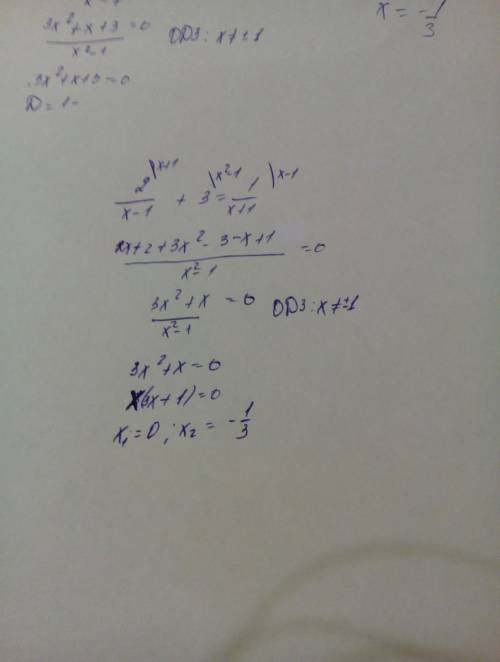 x = -1/3
3x²+x+3/x²-1 =0 ОДЗ: x≠±1
3x²+x+3=0
D=1-
2/x-1 |x+1 + 3 |x²-1 = 1/x+1 |x-1
2x+2+3x²-3-x+1/x²-1 =0
3x²+x/x²-1 =0 ОДЗ: x≠±1
3x²+x=0
x(3x+1)=0
x₁=0; x₂ = -1/3